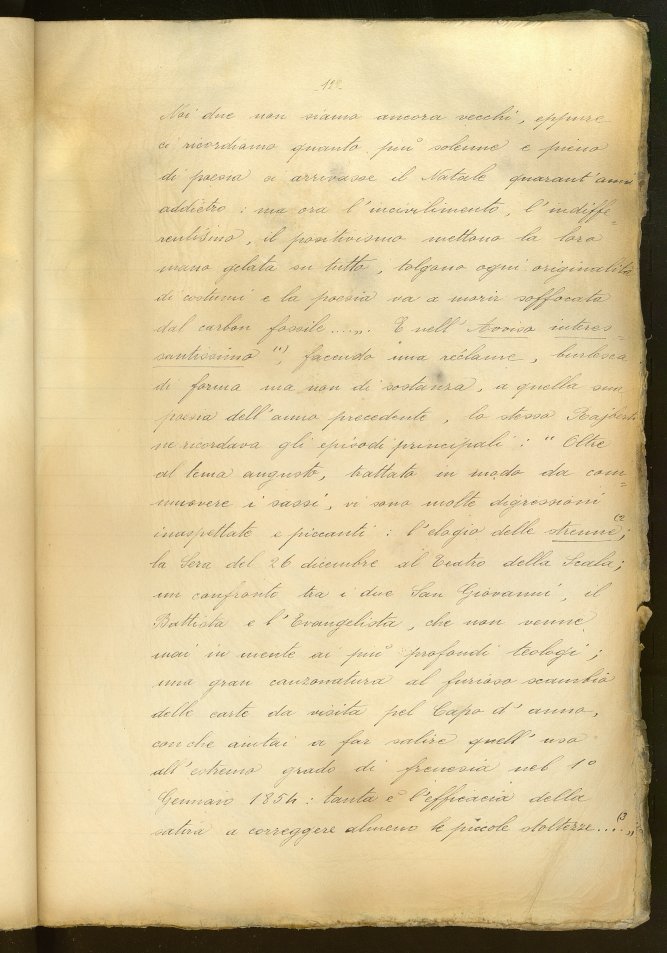 Noi due non siamo ancora vecchi, eppure
ci ricordiamo quanto più solenne e pieno
di poesia ci arrivasse il Natale quarant'anni
addietro: ma ora l'incivilimento, l'indiffe=
rentismo, il positivismo mettono la loro
mano gelata su tutto, tolgono ogni originalità
di costumi e la poesia va a morir soffocata
dal carbon fossile....„. E nell'Avviso interes=
santissimo (1), facendo una réclame, burlesca
di forma ma non di sostanza, a quella sua
poesia dell'anno precedente, lo stesso Rajberti
ne ricordava gli episodi principali: "Oltre
al tema augusto, trattato in modo da com=
muovere i sassi, vi sono molte digressioni
inaspettate e piccanti: l'elogio delle strenne (2;
la Sera del 26 dicembre al Teatro della Scala;
un confronto tra i due San Giovanni, il
Battista e l'Evangelista, che non venne
mai in mente ai più profondi teologi;
una gran canzonatura al furioso scambio
delle carte da visita pel Capo d'anno,
con che aiutai a far salire quell'uso
all'estremo grado di frenesia nel 1°
Gennaio 1854: tanta è l'efficacia della
satira a correggere almeno le piccole stoltezze....„ (3